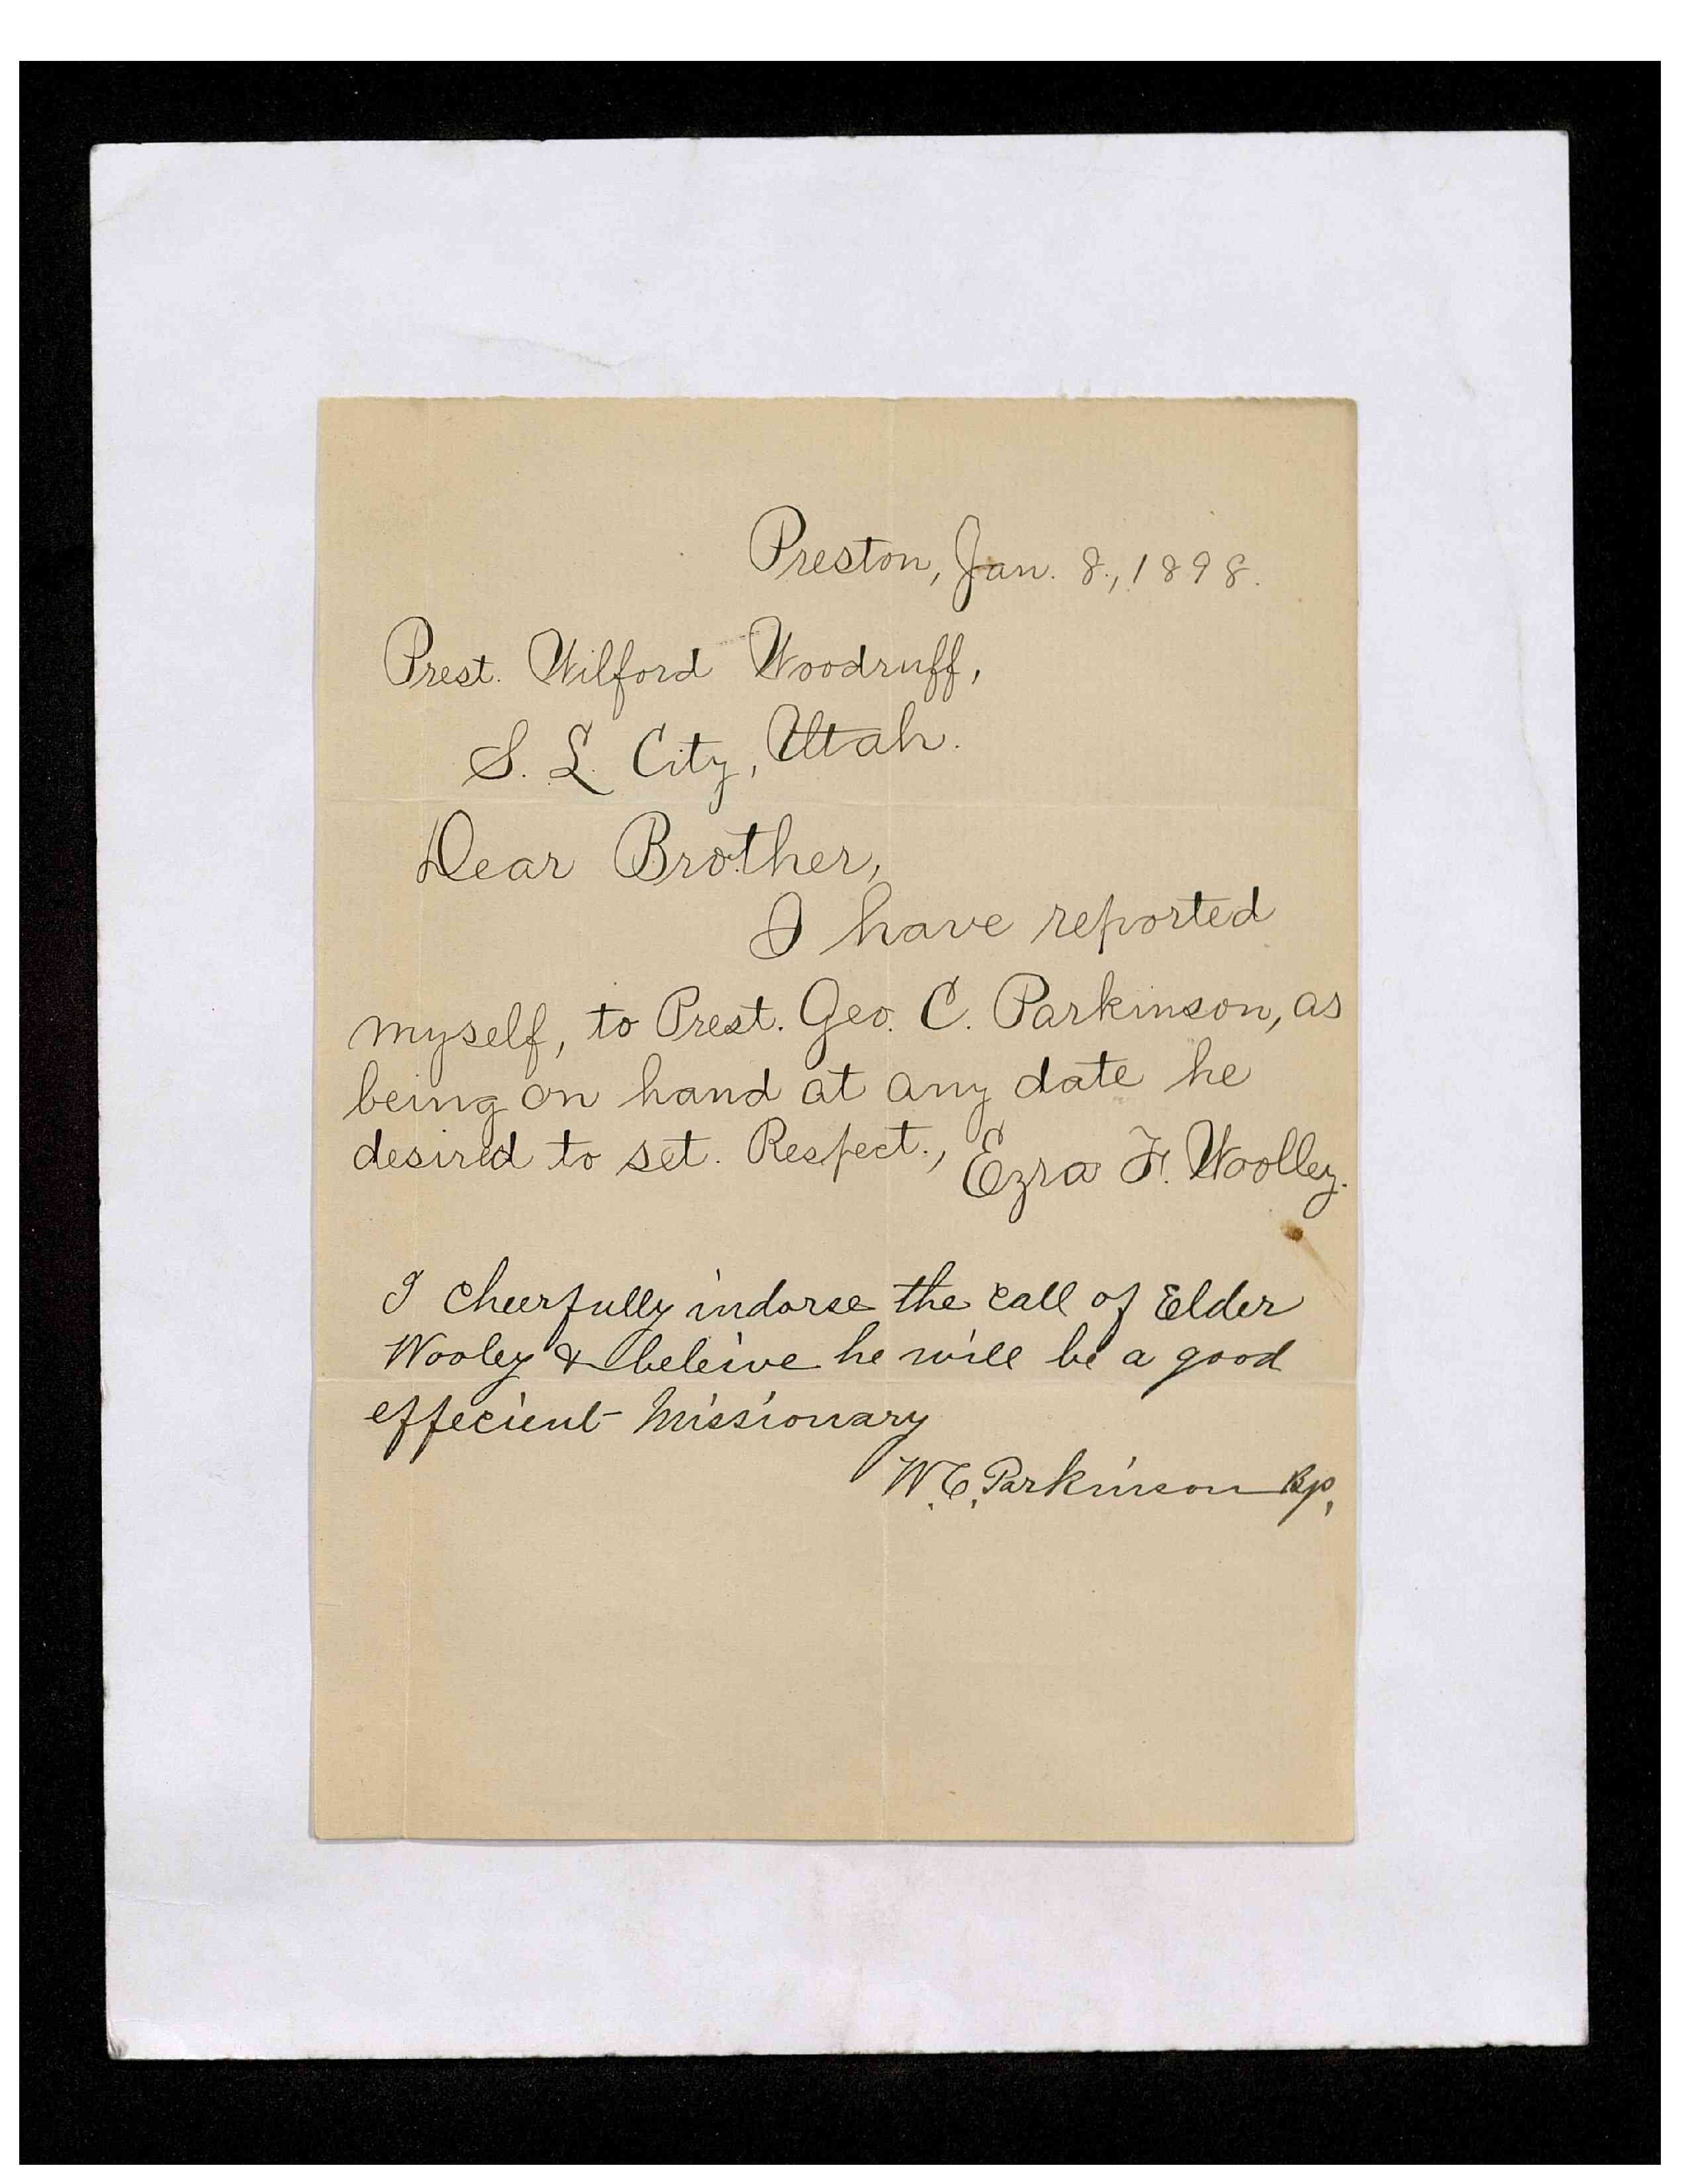 Preston, Jan. 8., 1898.
Prest. Wilford Woodruff,
S. L. City, Utah.
Dear Brother,
I have reported
myself, to Prest. Geo. C. Parkinson, as
being on hand at any date he
desired to set. Respect., Ezra F. Woolley.
I cheerfully indorse the call of Elder
Wooley & beleive he will be a good
effecient Missionary
W. C. Parkinson Bp,